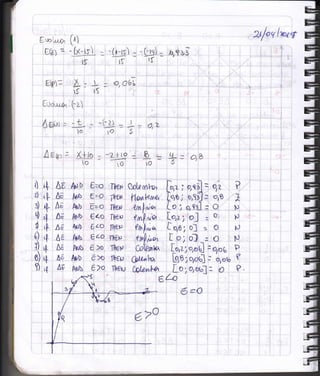 21/04/2015
Evalua (1)
E(z) = -(x-15)/15 = -(1-15)/15 = -(-14)/15 = 0,933
E(p) = x/15 = 1/15 = 0,066
Evalua (-2)
ΔE(n) = -t/10 = -(-2)/10 = 1/5 = 0,2
ΔE(z) = x+10/10 = -2+10/10 = 8/10 = 4/5 = 0,8
1) if ΔE AND E=0 THEN Calentar [0,2; 0,93] = 0,2 P
2) if ΔE AND E=0 THEN Mantener [0,8; 0,93] = 0,8 Z
3) if ΔE AND E=0 THEN Enfriar [0; 0,93] = 0 N
4) if ΔE AND E<0 THEN Enfriar [0,2; 0] = 0 N
5) if ΔE AND E<0 THEN Enfriar [0,8; 0] = 0 N
6) if ΔE AND E<0 THEN Enfriar [0; 0] = 0 N
7) if ΔE AND E>0 THEN Calentar [0,2; 0,06] = 0,06 P
8) if ΔE AND E>0 THEN Calentar [0,8; 0,06] = 0,06 P
9) if ΔE AND E>0 THEN Calentar [0; 0,06] = 0 P
E<0
E=0
E>0